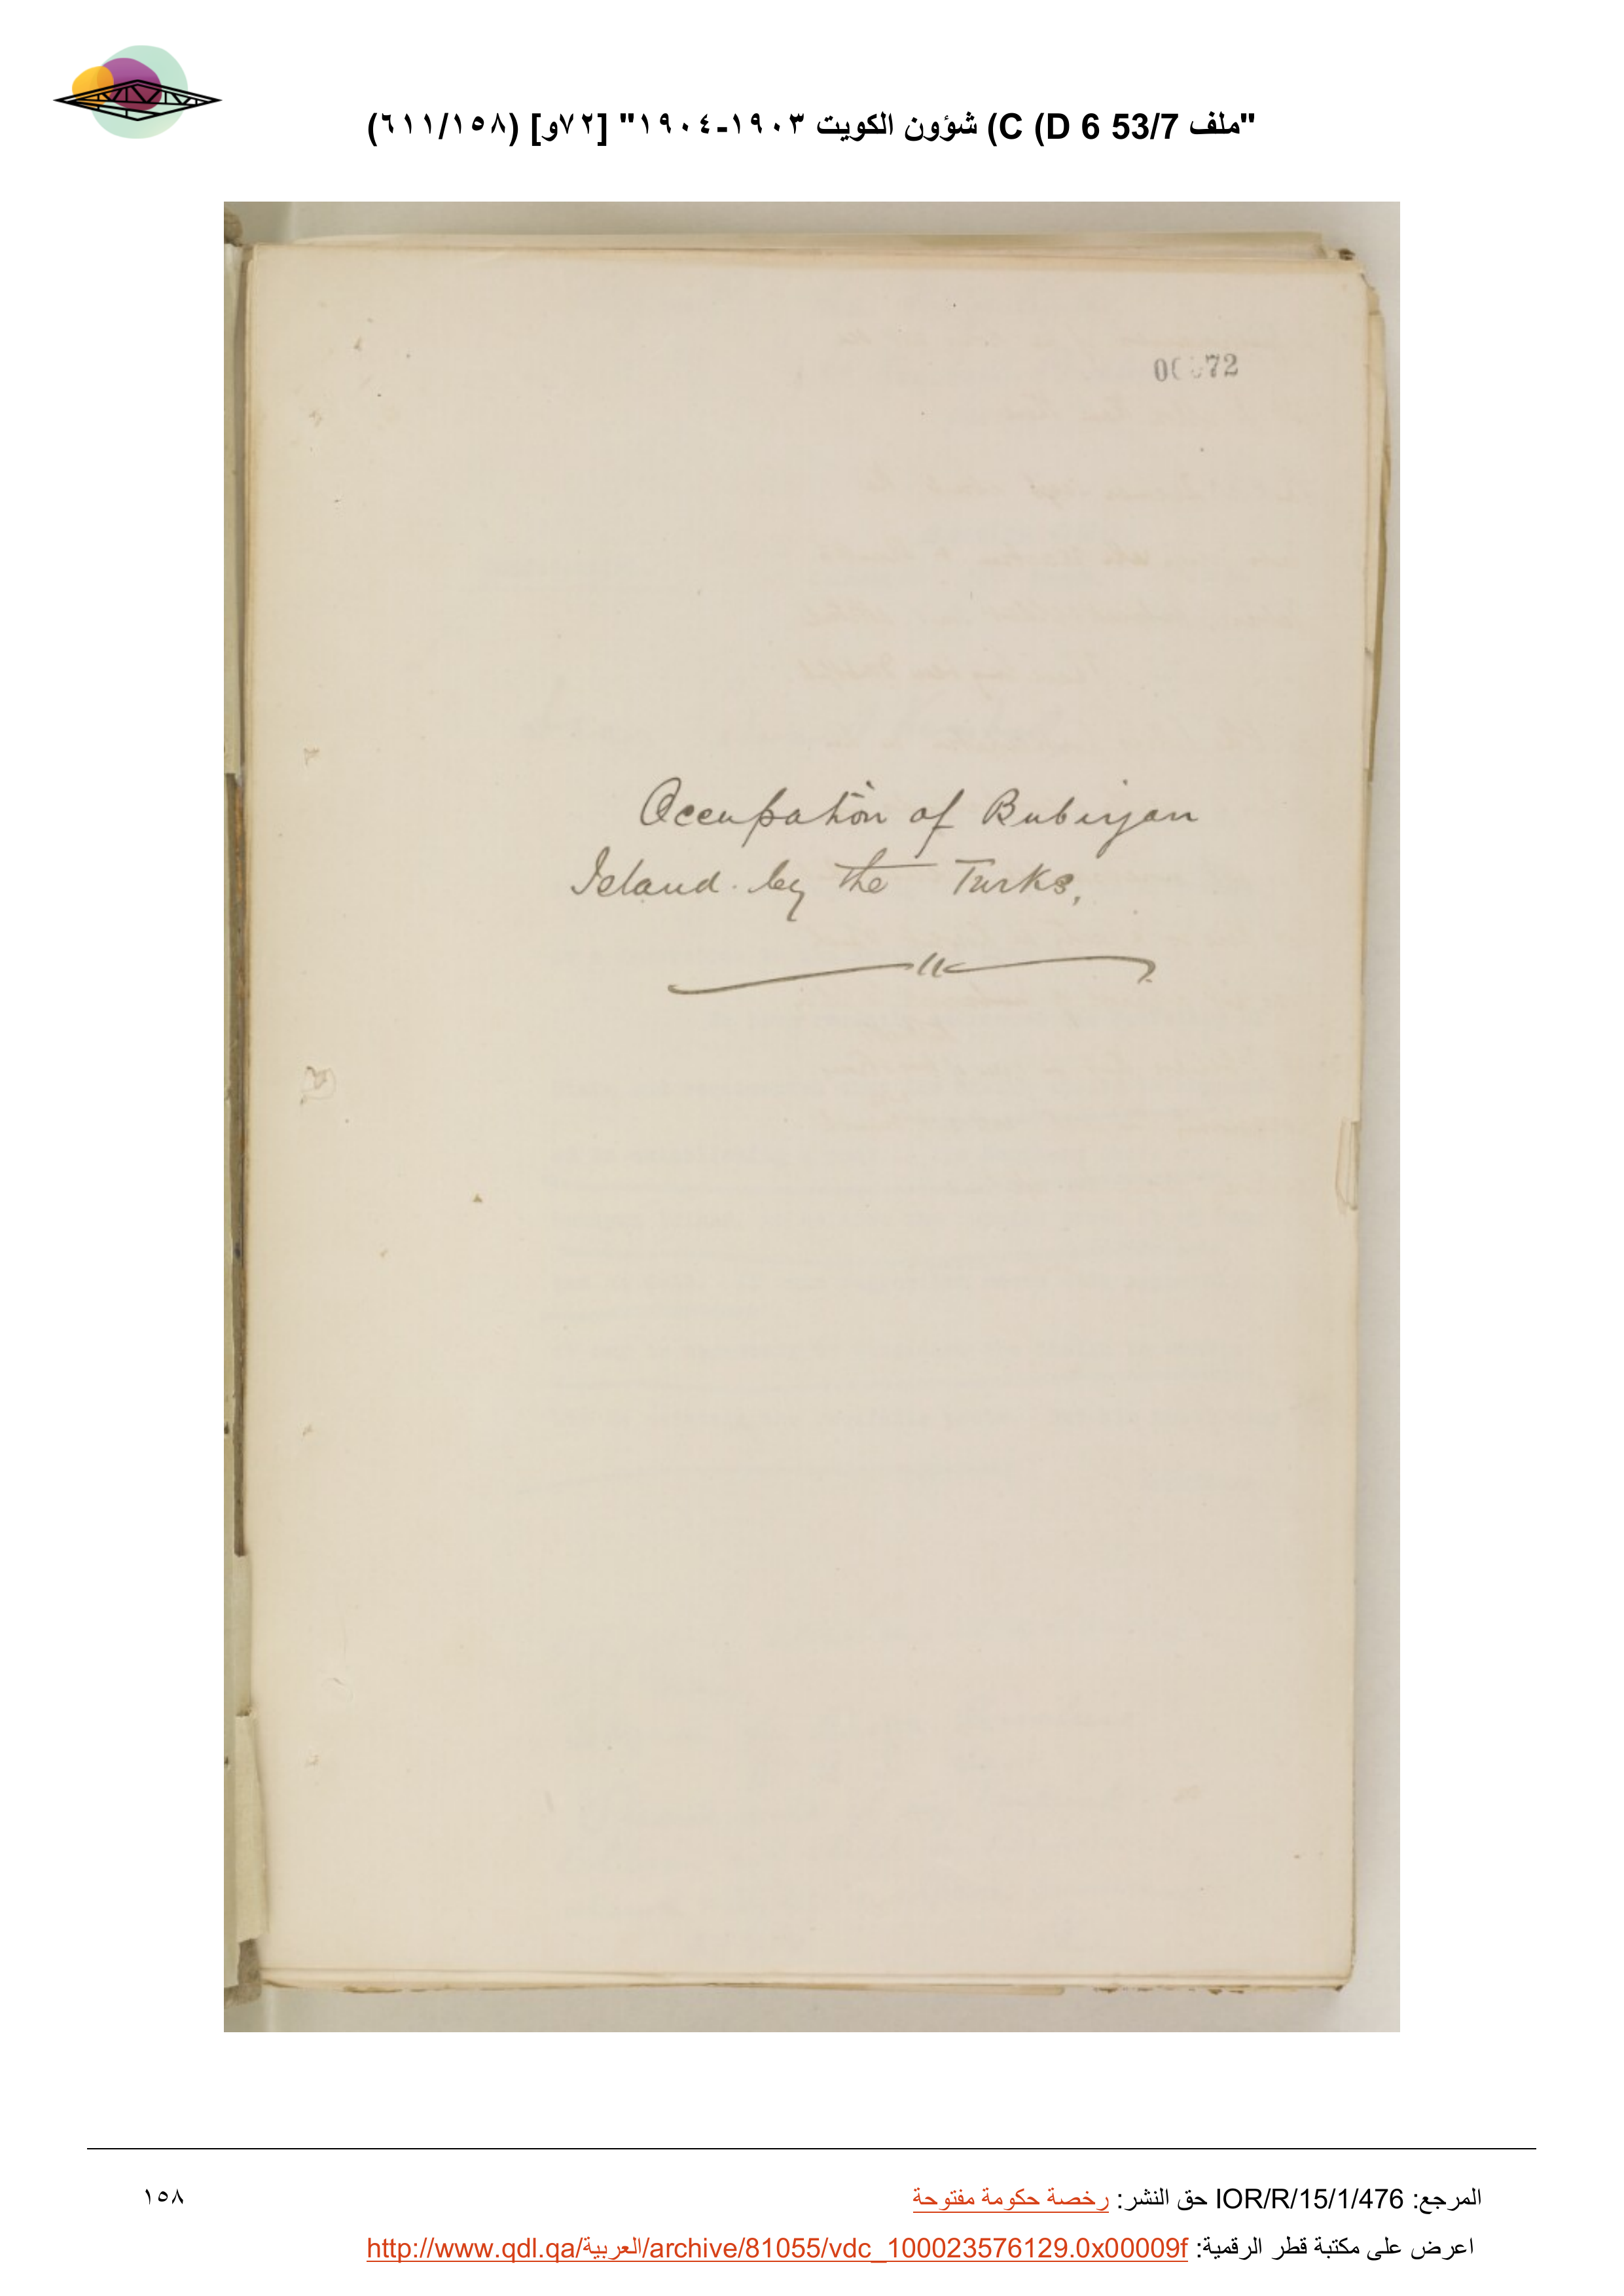 "ملف 53/7 C (D 6) شؤون الكويت ١٩٠٣-١٩٠٤" [٧٢و] (٦١١/١٥٨)
72
Occupation of Bubiyan
Island by the Turks,
المرجع: IOR/R/15/1/476 حق النشر: رخصة حكومة مفتوحة
١٥٨
اعرض على مكتبة قطر الرقمية: http://www.qdl.qa/العربية/archive/81055/vdc_100023576129.0x00009f